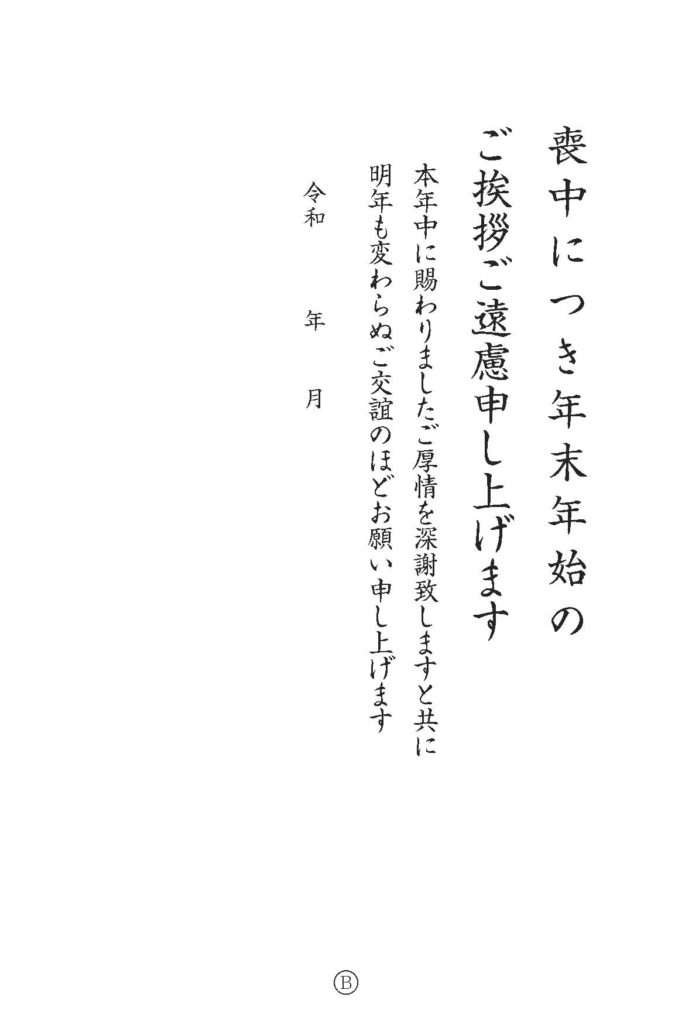 喪中につき年末年始の
ご挨拶ご遠慮申し上げます
本年中に賜わりましたご厚情を深謝致しますと共に
明年も変わらぬご交誼のほどお願い申し上げます
令和　　年　月
Ⓑ